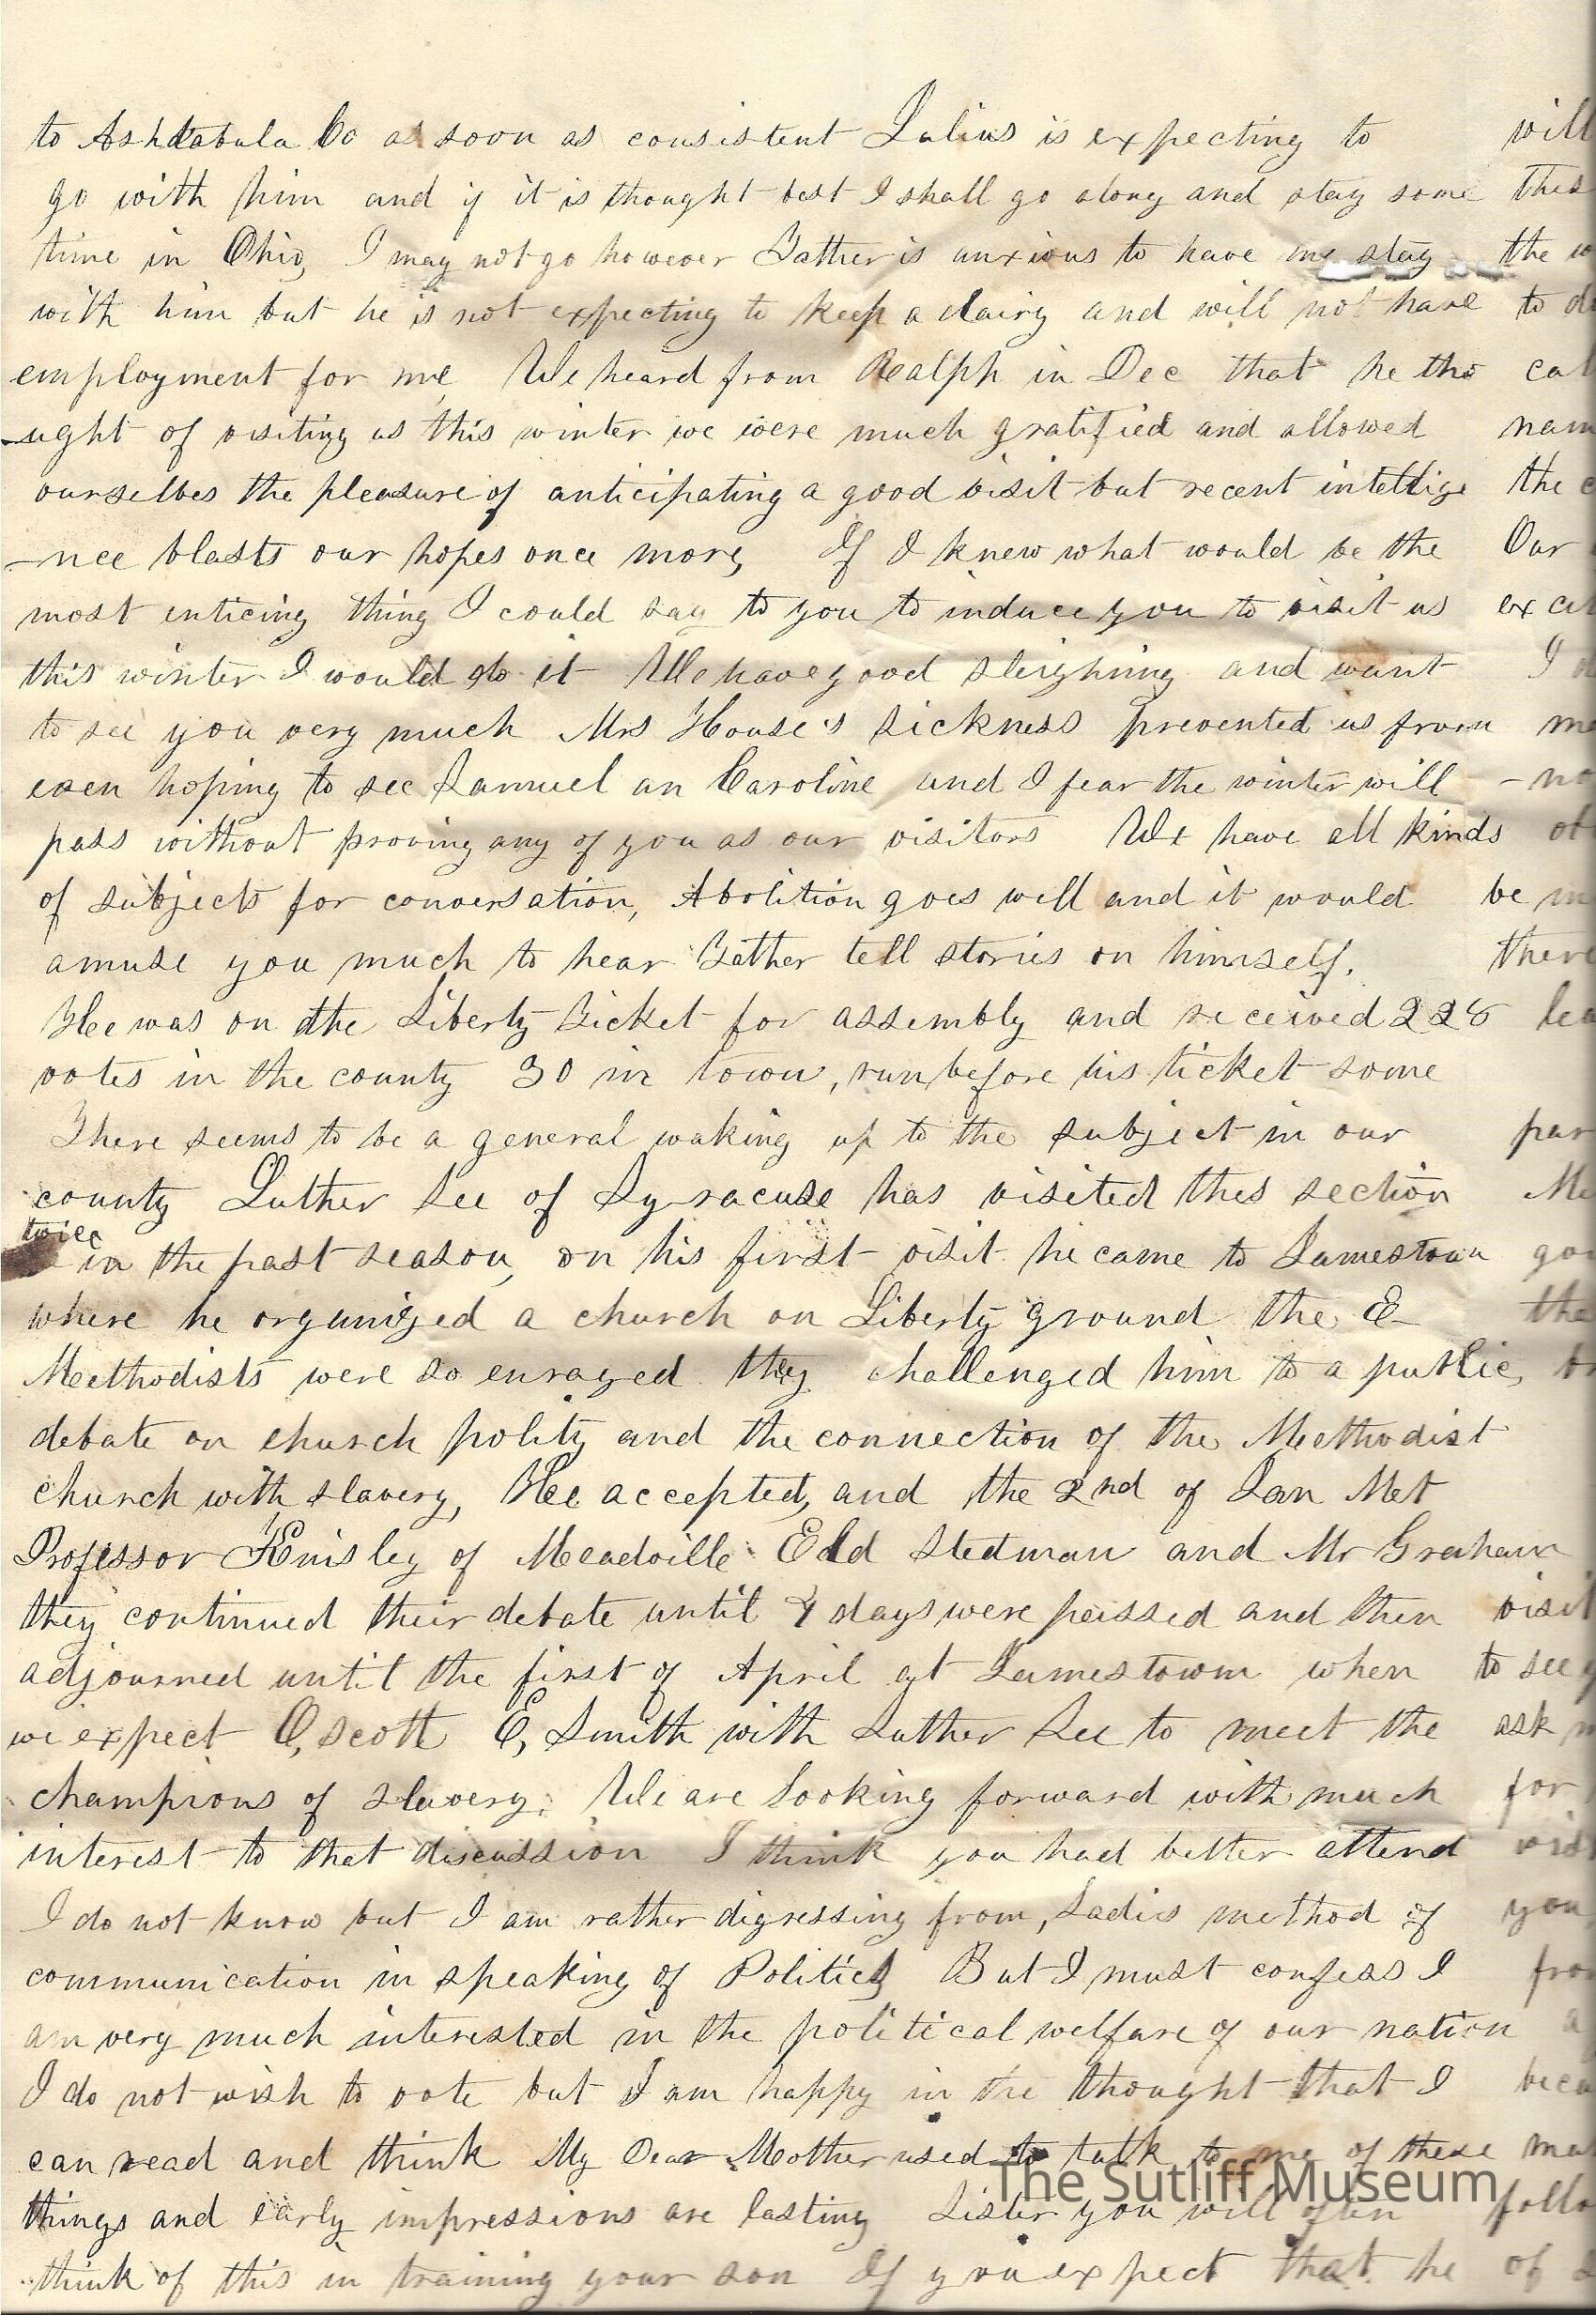 to Ashtabula Co as soon as consistent Julius is expecting to
go with him and if it is thought best I shall go along and stay some
time in Ohio, I may not go however Father is anxious to have me stay
with him but he is not expecting to keep a dairy and will not have
employment for me, We heard from Ralph in Dec that he tho
-ught of visiting us this winter we were much gratified and allowed
ourselves the pleasure of anticipating a good visit but recent intellige
-nce blasts our hopes once more, If I knew what would be the
most enticing thing I could say to you to induce you to visit us
this winter I would do it We have good sleighing and want
to see you very much Mrs House's sickness prevented us from
even hoping to see Samuel an Caroline and I fear the winter will
pass without proving any of you as our visitors We have all kinds
of subjects for conversation, Abolition goes well and it would
amuse you much to hear Father tell stories on himself.
He was on the Liberty Ticket for assembly and received 228
votes in the county 30 in town, run before his ticket some
There seems to be a general waking up to the subject in our
county Luther Lee of Syracuse has visited this section
twice
in the past season, on his first visit he came to Jamestown
where he organized a church on Liberty ground the E
Methodists were so enraged they challenged him to a public,
debate on church polity and the connection of the Methodist
church with slavery, He accepted, and the 2nd of Jan Met
Professor Kinsley of Meadville Eld Stedman and Mr Graham
they continued their debate until days were passed and then
adjourned until the first of April at Jamestown when
we expect O, Scott E, Smith with Luther Lee to meet the
champions of slavery. We are looking forward with much
interest to that discussion I think you had better attend
I do not know but I am rather digressing from, Ladies method of
communication in speaking of Politics But I must confess I
am very much interested in the political welfare of our nation
I do not wish to vote but I am happy in the thought that I
can read and think My Dear Mother used to talk to me of these
things and early impressions are lasting Sister you will often
think of this in training your son If you expect that he
will
the
to
Our
I
be
there
visit
to see
ask
for
you
of
The Sutliff Museum